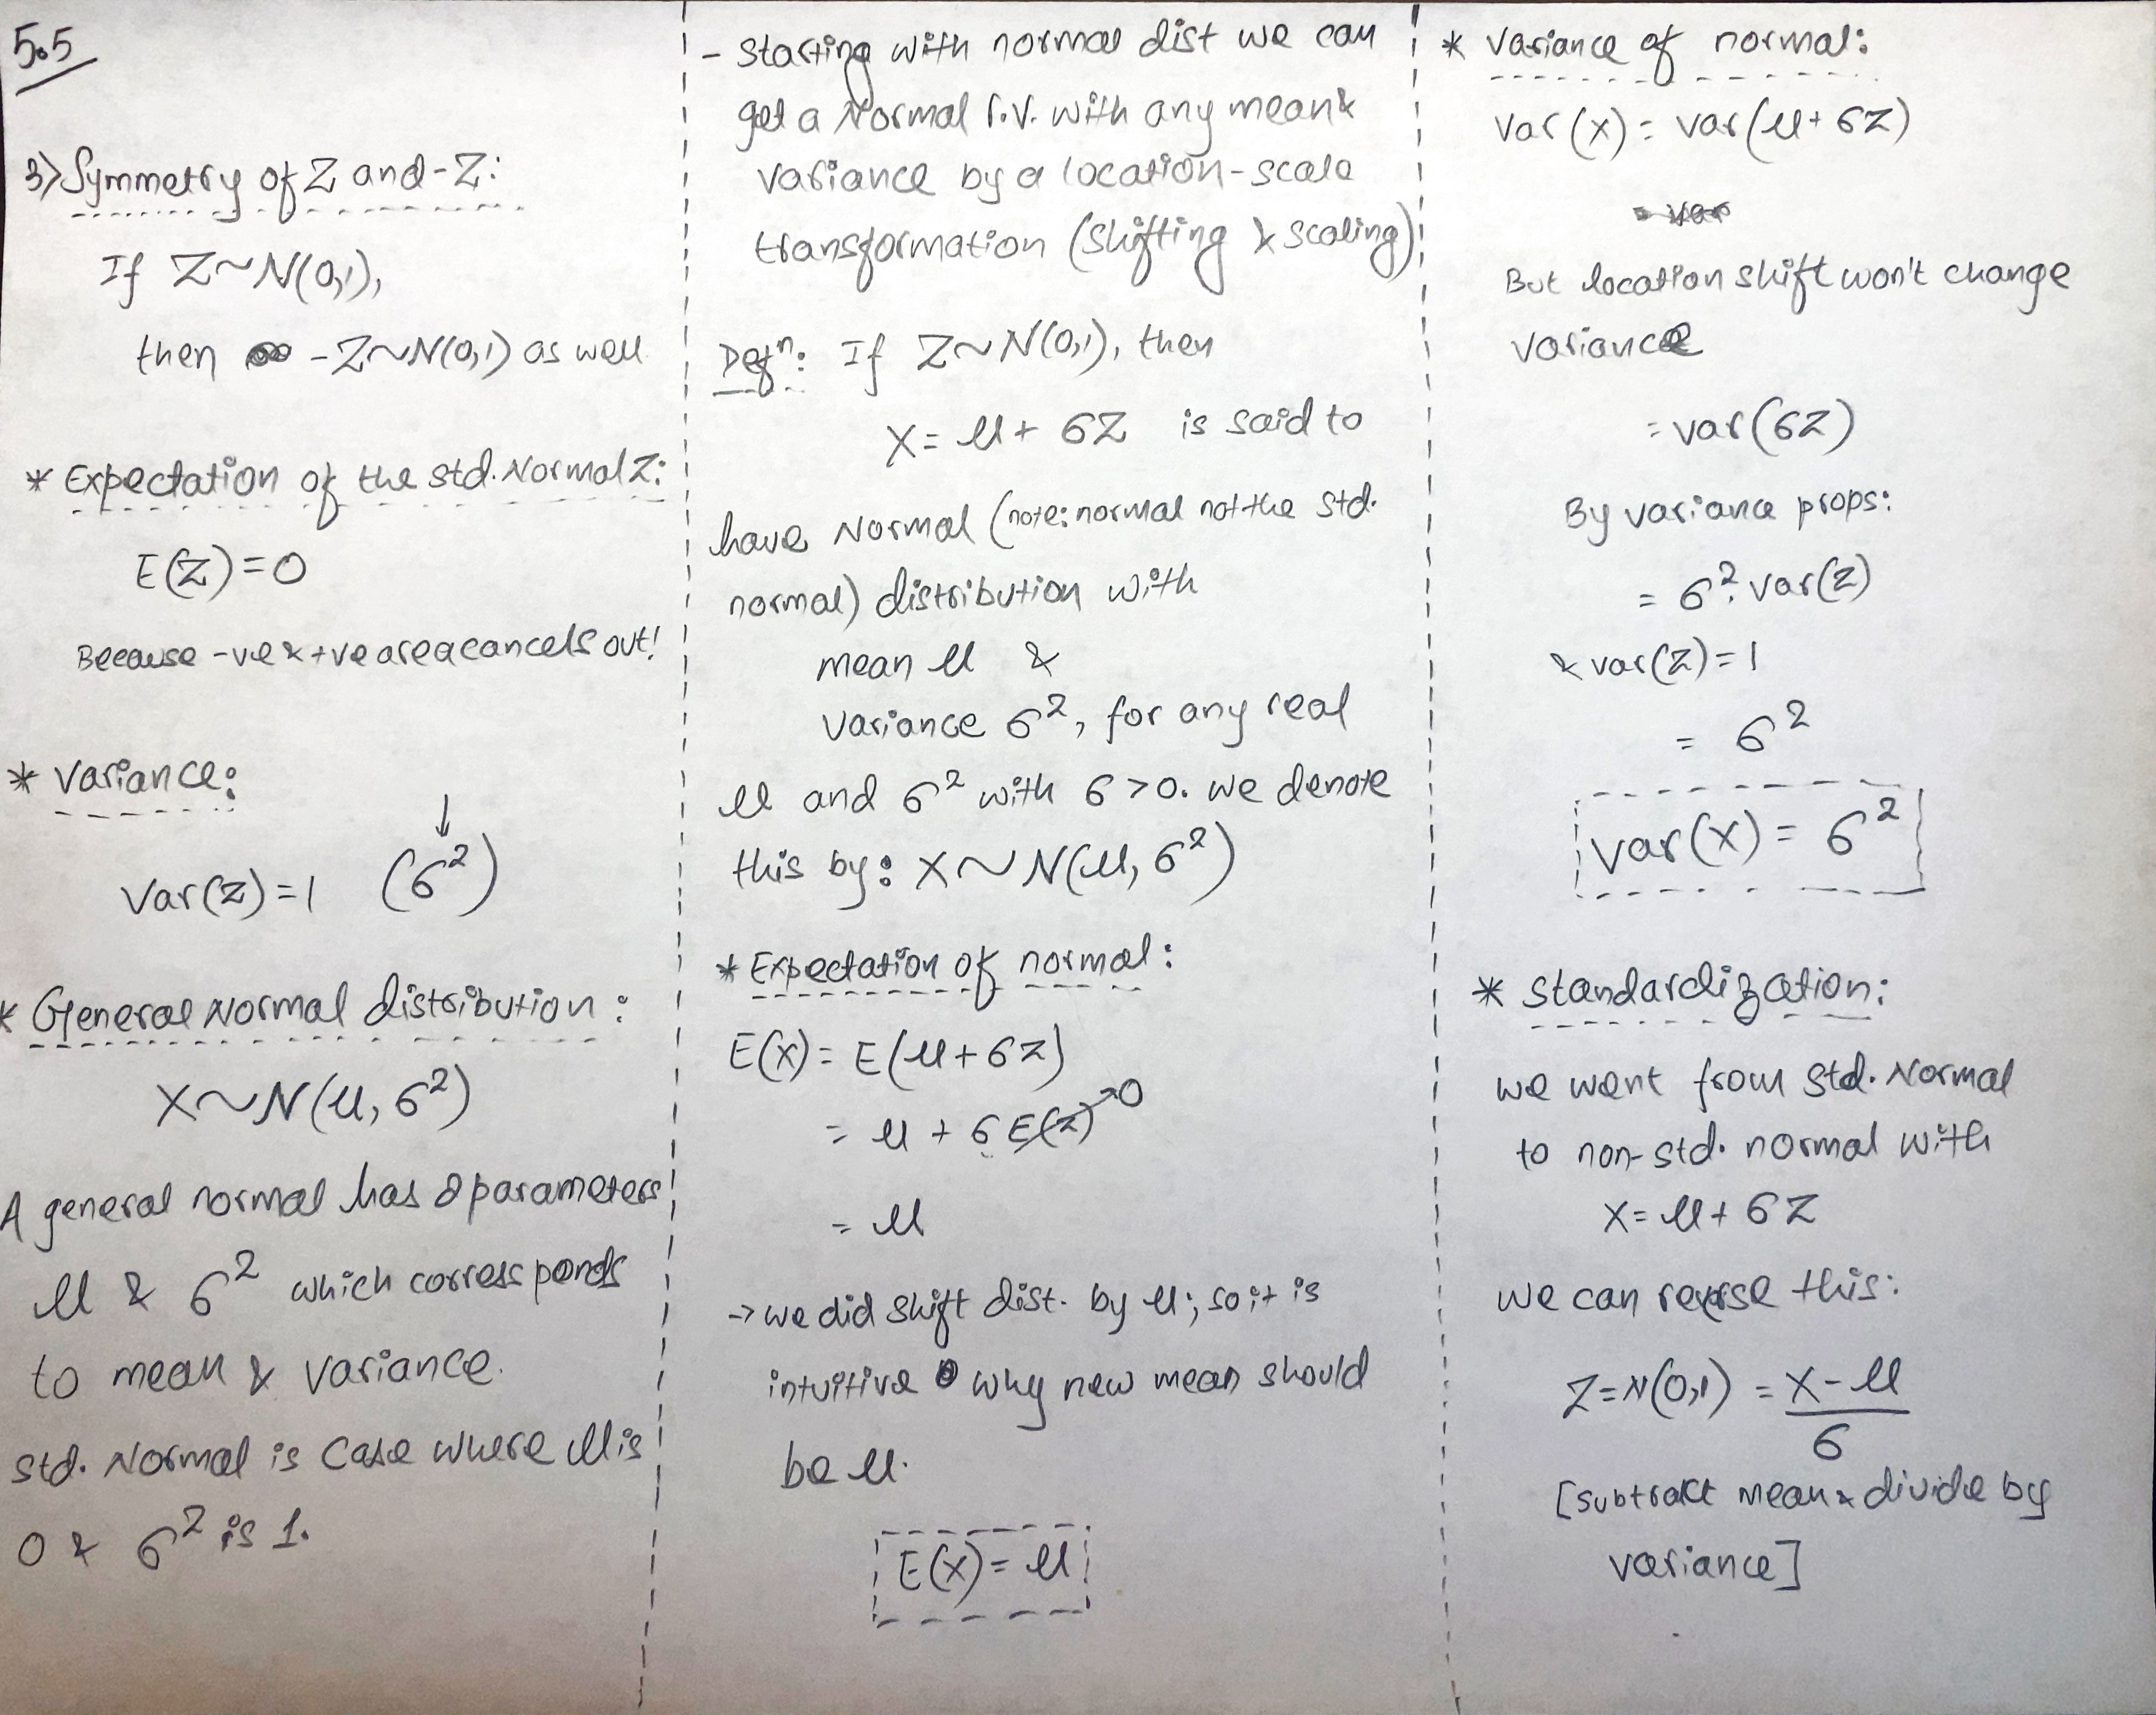 5.5
3) Symmetry of Z and -Z:
If Z~N(0,1),
then -Z~N(0,1) as well
* Expectation of the std. Normal Z:
E(Z)=0
Because -ve & +ve area cancels out!
* Variance:
↓
Var(Z)=1 (σ²)
* General Normal distribution:
X~N(μ, σ²)
A general normal has 2 parameters
μ & σ² which corresponds
to mean & variance.
std. Normal is case where μ is
0 & σ² is 1.
- Starting with normal dist we can
get a Normal r.v. with any mean &
variance by a location-scale
transformation (shifting & scaling)
Defⁿ: If Z~N(0,1), then
X= μ+ σZ is said to
have Normal (note: normal not the std.
normal) distribution with
mean μ &
Variance σ², for any real
μ and σ² with σ>0. we denote
this by: X~N(μ, σ²)
* Expectation of normal:
E(X)= E(μ+σZ)
= μ + σE(Z)→0
= μ
→ we did shift dist. by μ; so it is
intuitive why new mean should
be μ.
E(X)= μ
* Variance of normal:
Var(X)= Var(μ+ σZ)
= var
But location shift won't change
variance
= var(σZ)
By variance props:
= σ². var(Z)
& var(Z)=1
= σ²
var(X)= σ²
* Standardization:
we went from std. Normal
to non-std. normal with
X= μ+ σZ
we can reverse this:
Z=N(0,1) = X-μ
σ
[subtract mean & divide by
variance]